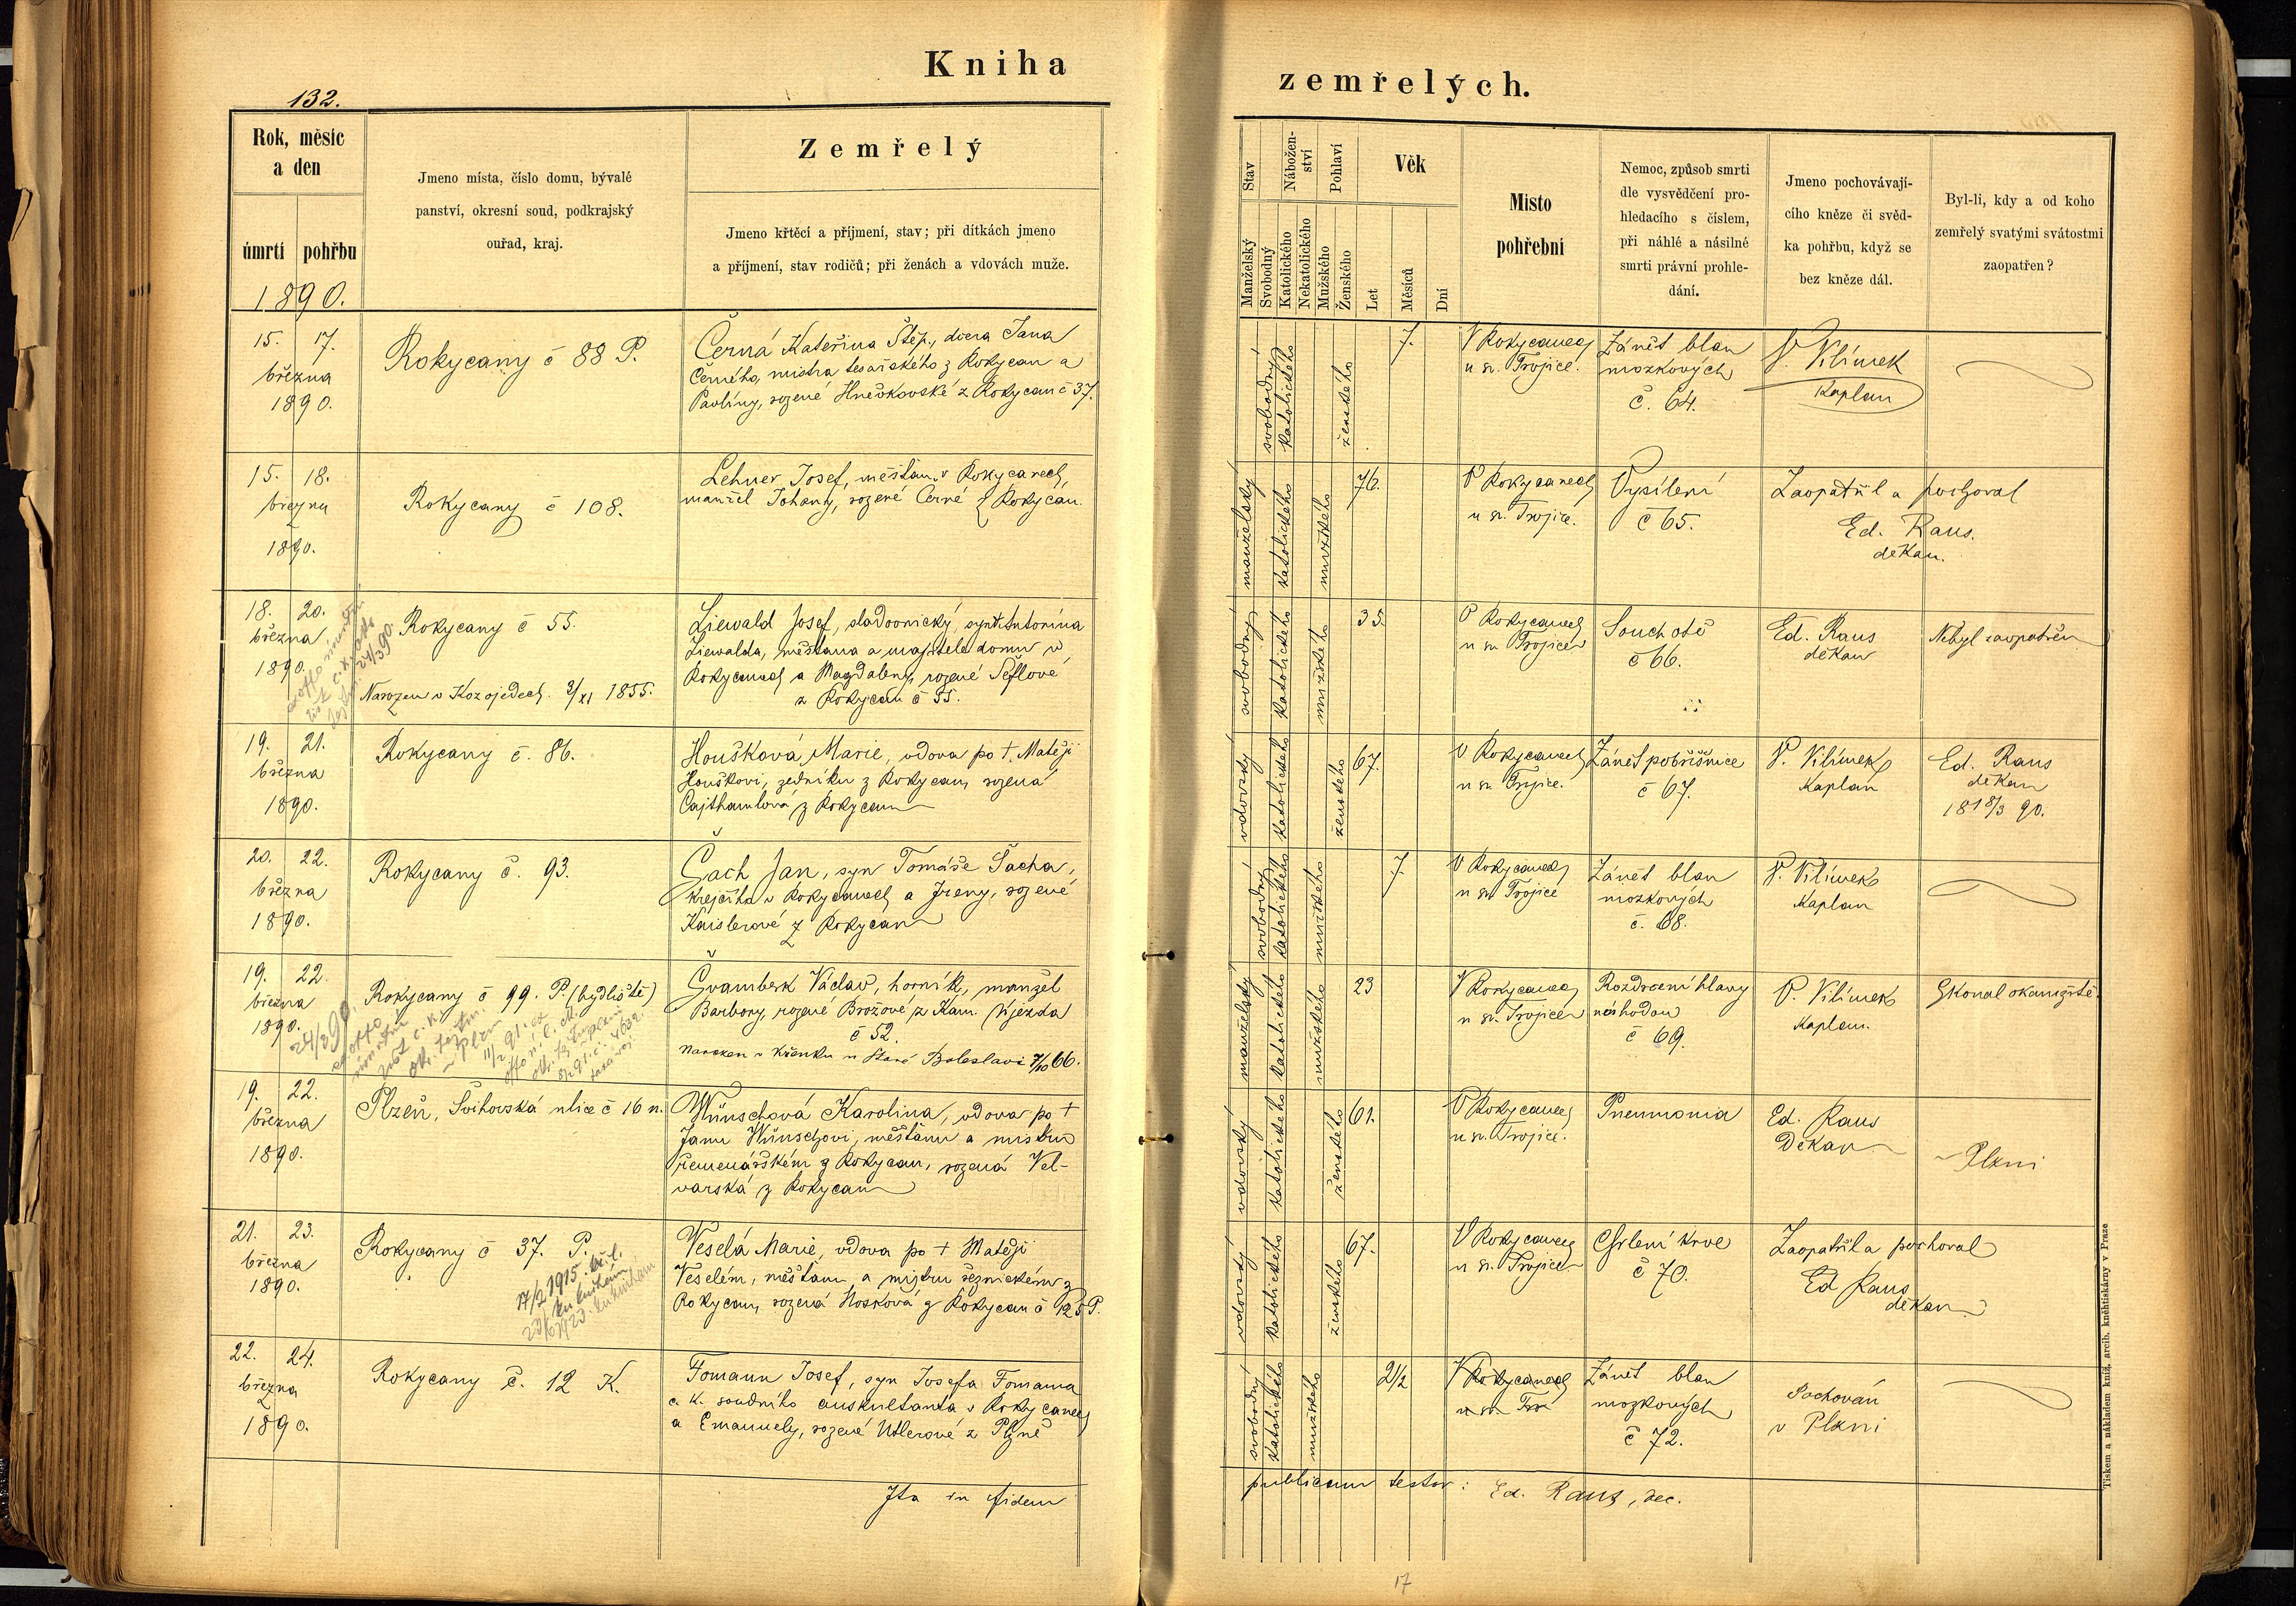 Kniha
zemřelých.
132.
Rok, měsíc
a den
úmrtí
pohřbu
1890.
Jmeno místa, číslo domu, bývalé
panství, okresní soud, podkrajský
ouřad, kraj.
Zemřelý
Jmeno křtěcí a příjmení, stav; při dítkách jmeno
a příjmení, stav rodičů; při ženách a vdovách muže.
Stav
Manželský
Svobodný
Nábožen-
ství
Katolického
Nekatolického
Pohlaví
Mužského
Ženského
Věk
Let
Měsíců
Dní
Místo
pohřební
Nemoc, způsob smrti
dle vysvědčení pro-
hledacího s číslem,
při náhlé a násilné
smrti právní prohle-
dání.
Jmeno pochovávají-
cího kněze či svěd-
ka pohřbu, když se
bez kněze dál.
Byl-li, kdy a od koho
zemřelý svatými svátostmi
zaopatřen?
15. 17.
března
1890.
Rokycany č 88 P.
Černá Kateřina Štěp., dcera Jana
Černého, mistra tesařského z Rokycan a
Pavlíny, rozené Hněvkovské z Rokycan č 37.
svobodný
katolického
ženského
7.
V Rokycanech
u sv. Trojice.
Zánět blan
mozkových
č. 64.
P. Vilímek
Kaplan
15. 18.
března
1890.
Rokycany č 108.
Lehner Josef, měšťan v Rokycanech,
manžel Johany, rozené Černé z Rokycan.
manželský
katolického
mužského
76.
V Rokycanech
u sv. Trojice.
Vysílení
č 65.
Zaopatřil a pochoval
Ed. Raus.
děkan.
18. 20.
března
1890.
Rokycany č 55.
Narozen v Kozojedech. 2/XI 1855.
Liewald Josef, sladovnický, syn Antonína
Liewalda, měšťana a majitele domu v
Rokycanech a Magdaleny, rozené Šeflové
z Rokycan č 55.
svobodný
katolického
mužského
35.
V Rokycanech
u sv. Trojice
Souchotě
č 66.
Ed. Raus
děkan
Nebyl zaopatřen
19. 21.
března
1890.
Rokycany č. 86.
Houšková Marie, vdova po † Matěji
Houškovi, zedníku z Rokycan, rozená
Cajthamlová z Rokycan
vdovský
katolického
ženského
67.
V Rokycanech
u sv. Trojice.
Zánět pobřišnice
č 67.
P. Vilímek
Kaplan
Ed. Raus
děkan
18 18/3 90.
20. 22.
března
1890.
Rokycany č. 93.
Šach Jan, syn Tomáše Šacha,
krejčího v Rokycanech a Ireny, rozené
Kaislerové z Rokycan
svobodný
katolického
mužského
7.
V Rokycanech
u sv. Trojice
Zánět blan
mozkových
č. 68.
P. Vilímek
Kaplan
19. 22.
března
1890.
Rokycany č 99. P. (bydliště)
Švamberk Václav, horník, manžel
Barbory, rozené Brožové z Kam. Újezda
č 52.
Narozen v Křenku u Staré Boleslavi 7/10 66.
manželský
katolického
mužského
23
V Rokycanech
u sv. Trojice
Rozdrcení hlavy
náhodou
č 69.
P. Vilímek
Kaplan.
Skonal okamžitě.
19. 22.
března
1890.
Plzeň, Švihovská ulice č 16 n.
Wünschová Karolina, vdova po †
Janu Wünschovi, měšťanu a mistru
řemenářském z Rokycan, rozená Vel-
varská z Rokycan
vdovský
katolického
ženského
61.
V Rokycanech
u sv. Trojice.
Pneumonia
Ed. Raus
Děkan
v Plzni
21. 23.
března
1890.
Rokycany č 37. P.
17/2 1915
Veselá Marie, vdova po † Matěji
Veselém, měšťanu a mistru řeznickém z
Rokycan, rozená Nosková z Rokycan č 125 P.
vdovský
katolického
ženského
67.
V Rokycanech
u sv. Trojice
Chrlení krve
č 70.
Zaopatřil a pochoval
Ed Raus
děkan
22. 24.
března
1890.
Rokycany č. 12 K.
Fomann Josef, syn Josefa Fomanna
c. k. soudního auskultanta v Rokycanech
a Emanuely, rozené Utlerové z Plzně
svobodný
katolického
mužského
2 1/2
V Rokycanech
u sv. Troj
Zánět blan
mozkových
č 72.
Pochován
v Plzni
Ita in fidem
publicam testor: Ed. Raus, dec.
17
Tiskem a nákladem kníž. arcib. knihtiskárny v Praze